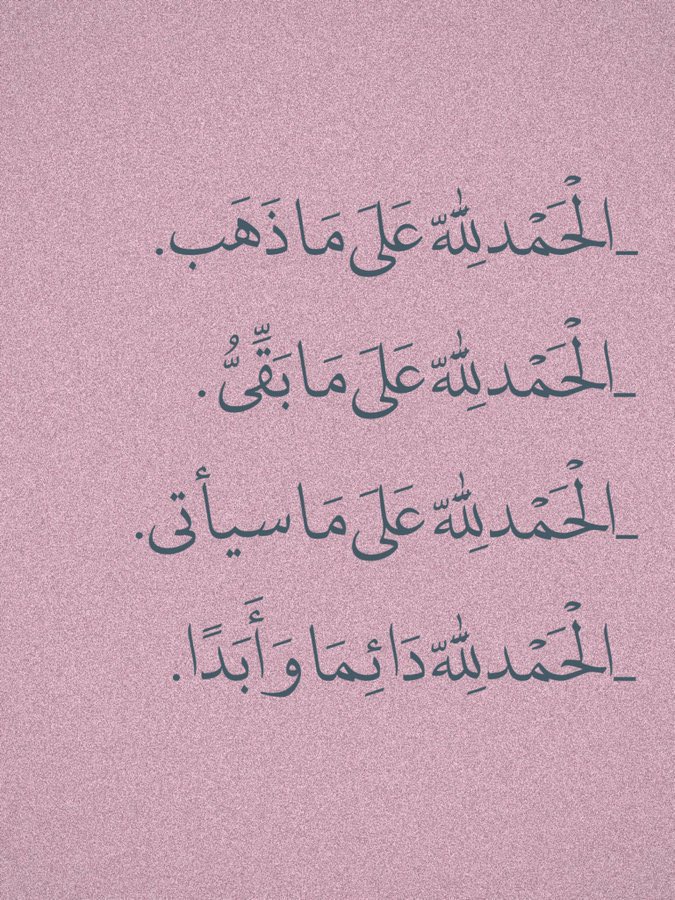 _الْحَمْد لِلّٰهّ عَلَى مَا ذَهَب.
_الْحَمْد لِلّٰهّ عَلَى مَا بَقِّىُّ .
_الْحَمْد لِلّٰهّ عَلَى مَا سيأتى.
_الْحَمْد لِلّٰهّ دَائِمَا وَأَبَدًا.